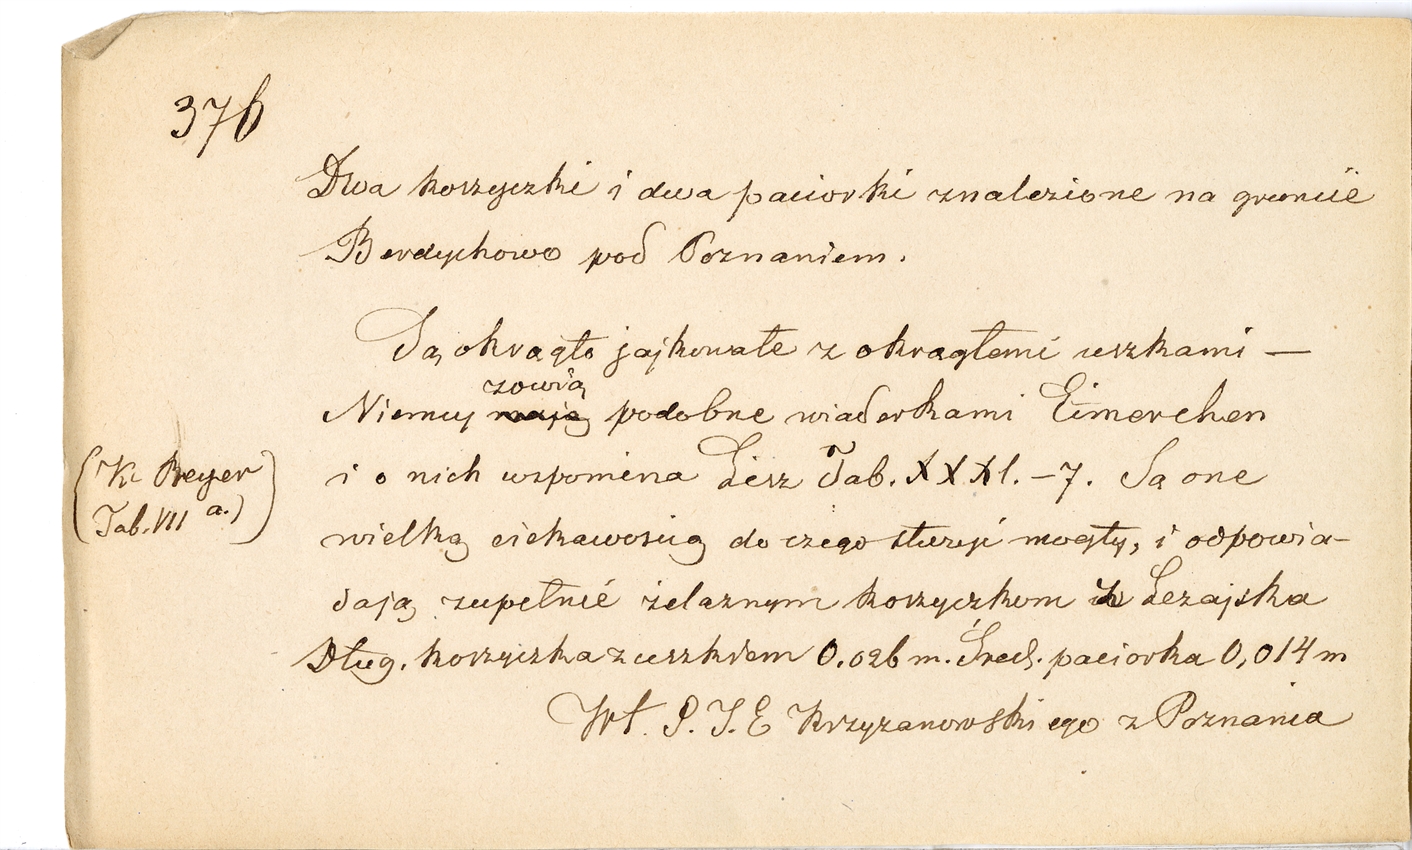 376
Dwa koszyczki i dwa paciorki znalezione na gruncie
Berdychowo pod Poznaniem.
Są okrągło jajkowate z okrągłemi uszkami —
zowią
Niemcy mają podobne wiaderkami Eimerchen
i o nich wspomina Lisz Tab. XXXI. – 7. Są one
(K. Beyer
Tab. VII a.)
wielką ciekawością do czego służyć mogły, i odpowia-
dają zupełnie żelaznym koszyczkom z Leżajska
Dług. koszyczka z uszkiem 0.026 m. Śred. paciorka 0,014 m
Wł. P. J. E Krzyżanowskiego z Poznania